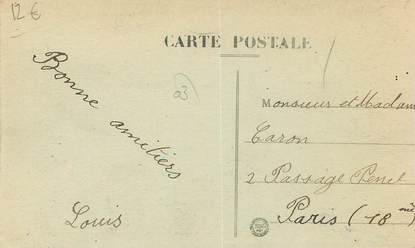 12 €
CARTE POSTALE
Bonne amitiers
Louis
03
Monsieur et Madam
Caron
2 Passage Penel
Paris (18 me)